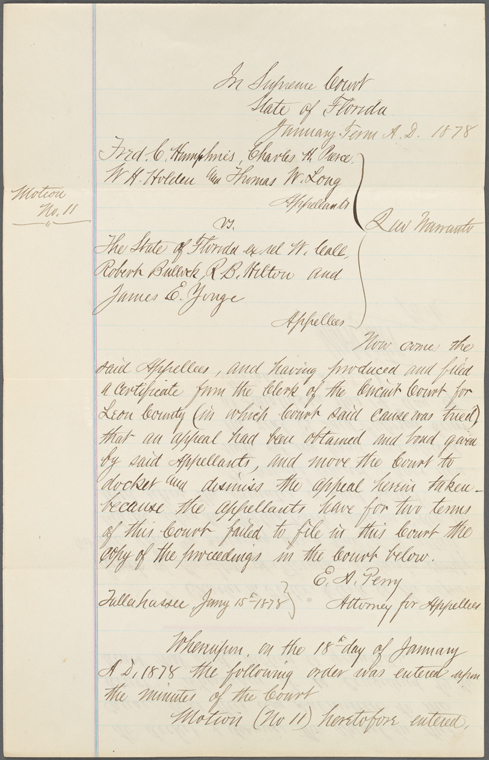 In Supreme Court
State of Florida
January Term A.D. 1878
Fred. C. Humphries, Charles H. Pearce
W. H. Holden and Thomas W. Long
Appellants
Motion
No. 11
vs.
Quo Warranto
The State of Florida ex rel W. Call,
Robert Bullock, R. B. Hilton and
James E. Yonge
Appellees
Now come the
said Appellees, and having produced and filed
a Certificate from the Clerk of the Circuit Court for
Leon County (in which Court said cause was tried)
that an appeal had been obtained and bond given
by said Appellants, and move the Court to
docket and dismiss the appeal herein taken—
because the appellants have for two terms
of this Court failed to file in this Court the
Copy of the proceedings in the Court below.
E. A. Perry
Tallahassee Jany 15th 1878 Attorney for Appellees
Whereupon, on the 18th day of January
A.D. 1878 the following order was entered upon
the minutes of the Court
Motion (No 11) heretofore entered,